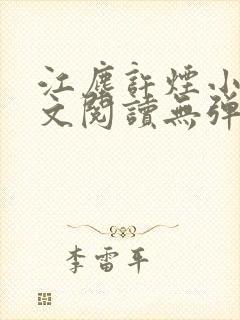 江塵許煙小
文閱讀無彈
李雷平